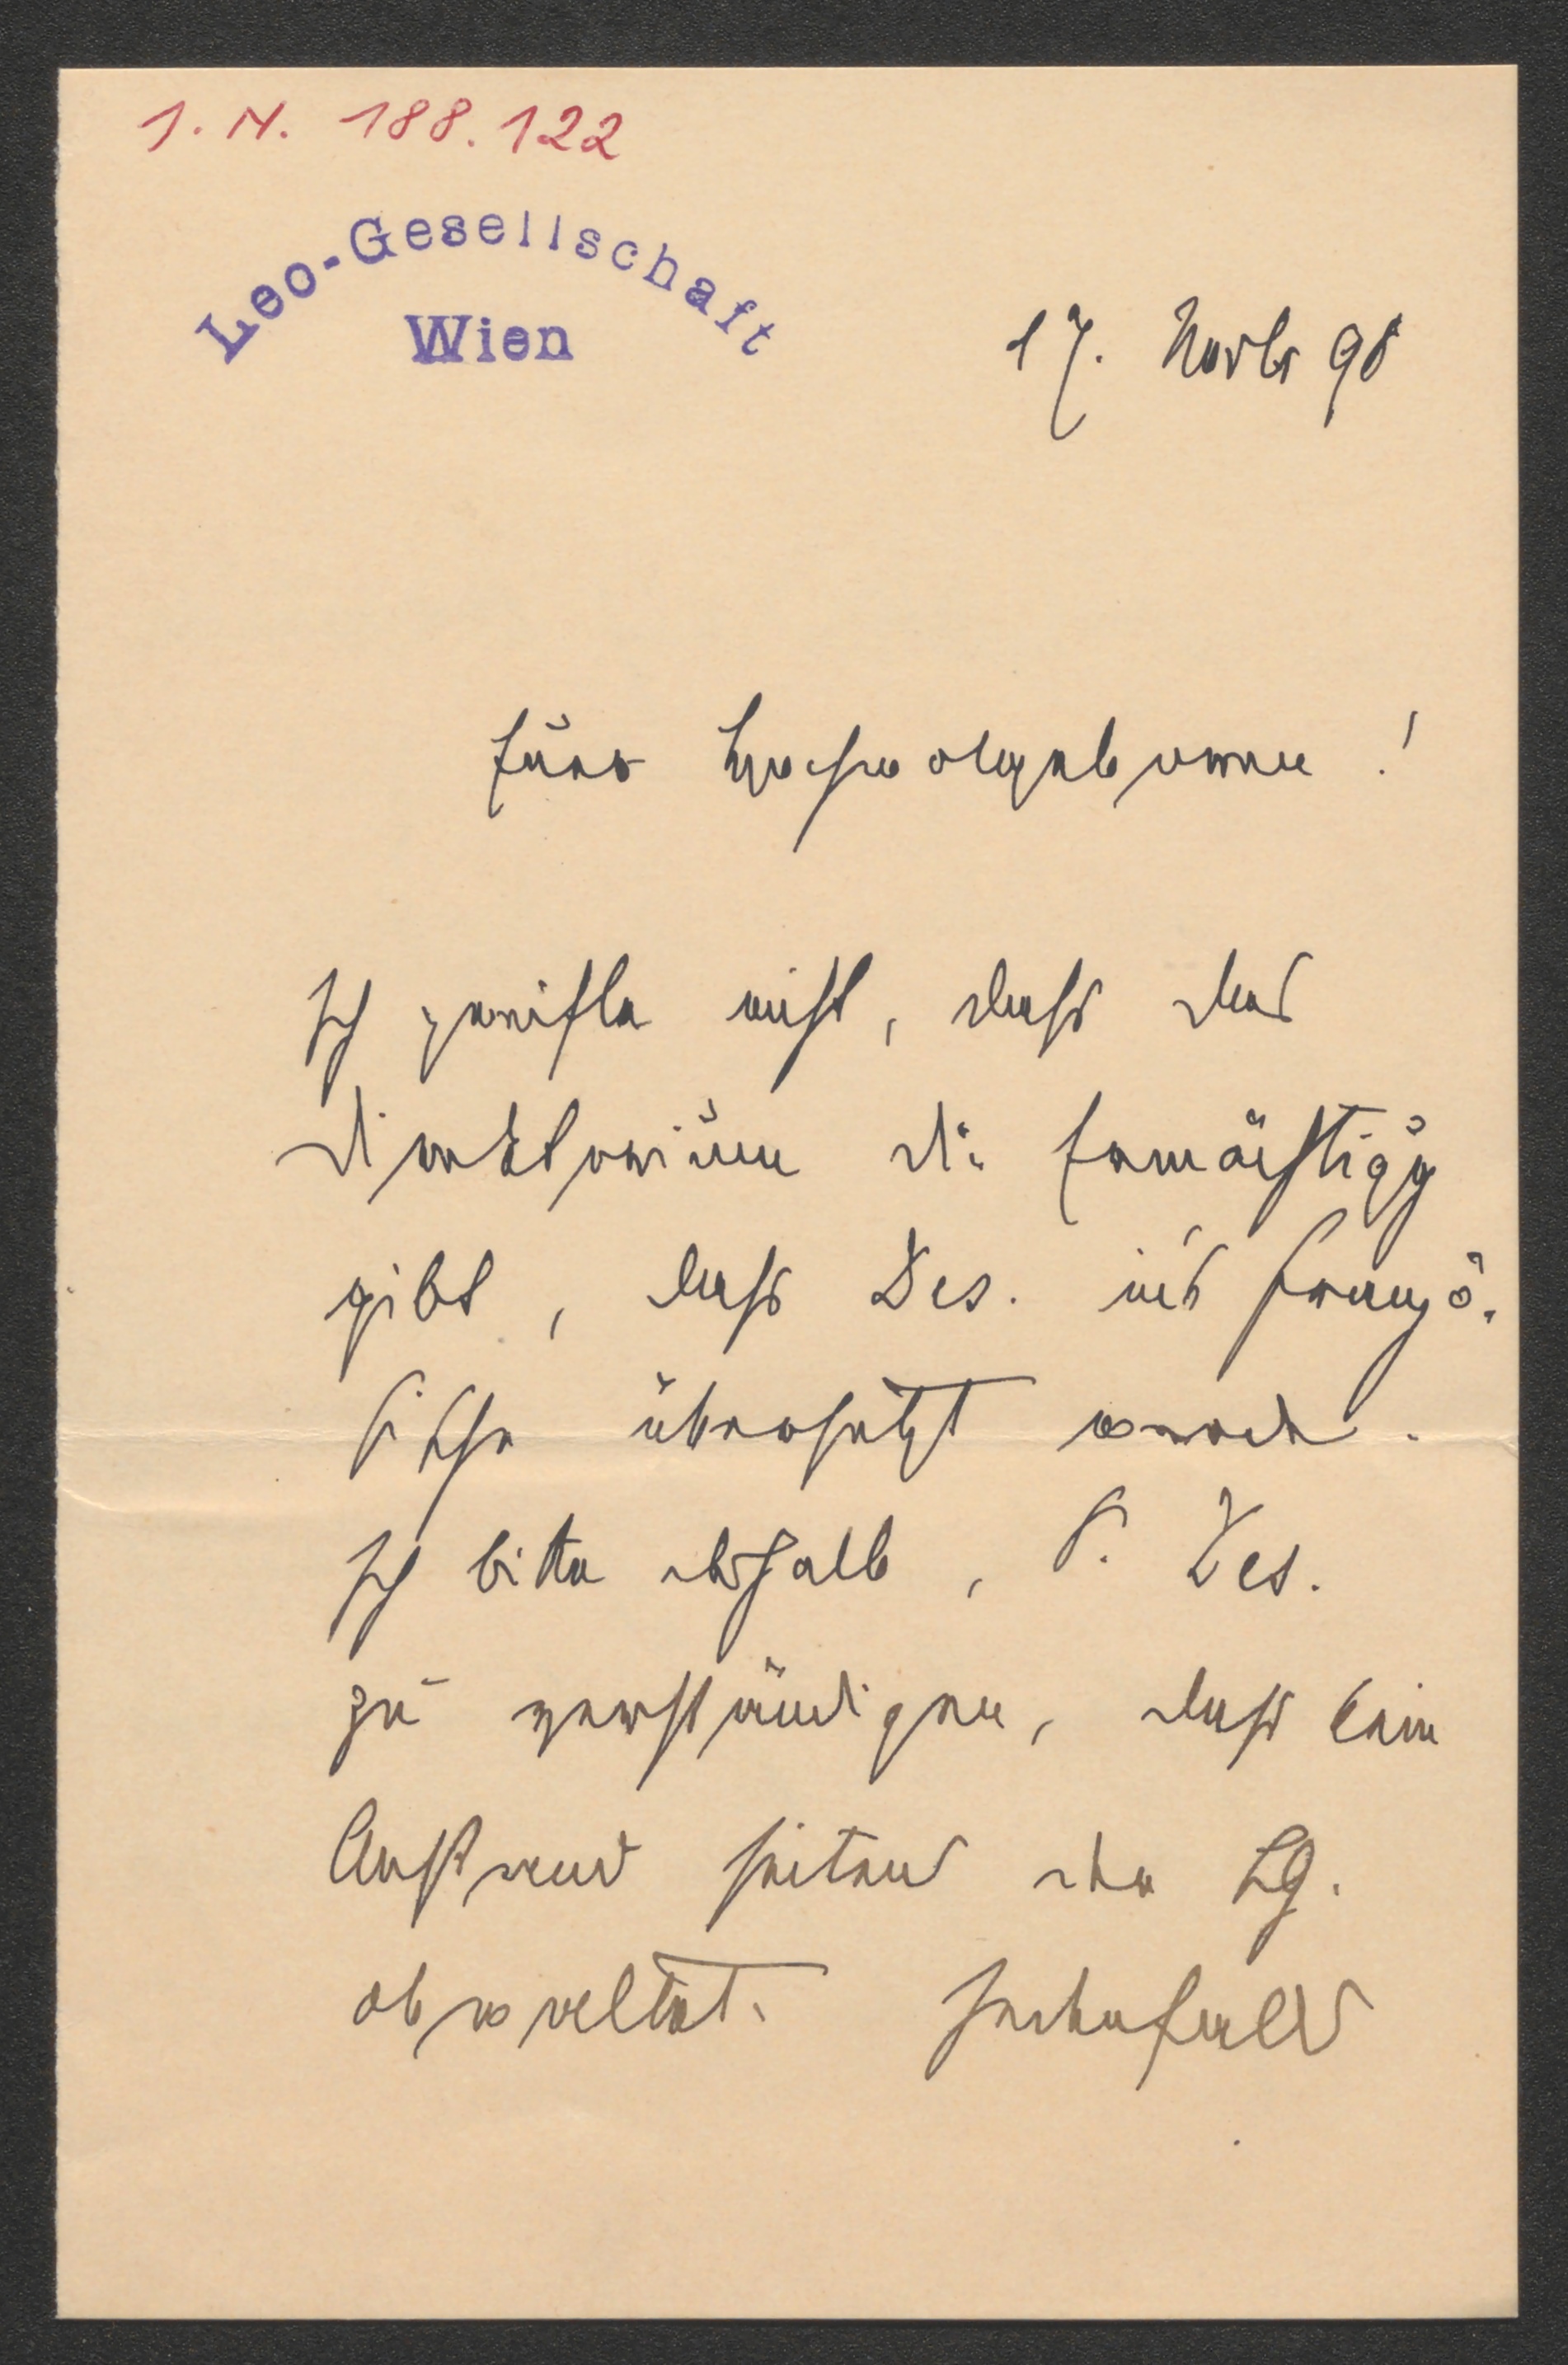 J. N. 188.122
Leo-Gesellschaft
Wien
17. Novbr 98
Euer Hochwolgeboren!
Ich zweifle nicht, dass das
Direktorium die Ermächtigg
gibt, dass Des. ins Franzö-
sische übersetzt werde.
Ich bitte deshalb, P. Des.
zu verständigen, dass kein
Anstand seitens der LG.
obwaltet. Jedenfalls